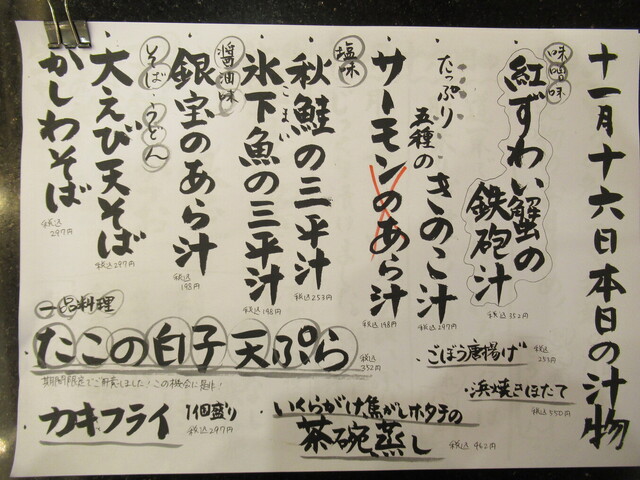 十一月十六日本日の汁物
味噌味
紅ずわい蟹の
鉄砲汁
税込352円
たっぷり
五種の
きのこ汁
税込297円
サーモンのあら汁
税込198円
塩味
秋鮭の三平汁
税込253円
氷下魚の三平汁
こまい
税込198円
醤油味
銀宝のあら汁
税込198円
そば うどん
・大えび天そば
税込297円
・かしわそば
税込297円
一品料理
たこの白子天ぷら
税込352円
期間限定でご用意しました!この機会に是非!
・ごぼう唐揚げ
税込253円
・浜焼きほたて
税込550円
カキフライ 1個盛り
税込297円
・いくらがけ焦がしホタテの
茶碗蒸し
税込462円